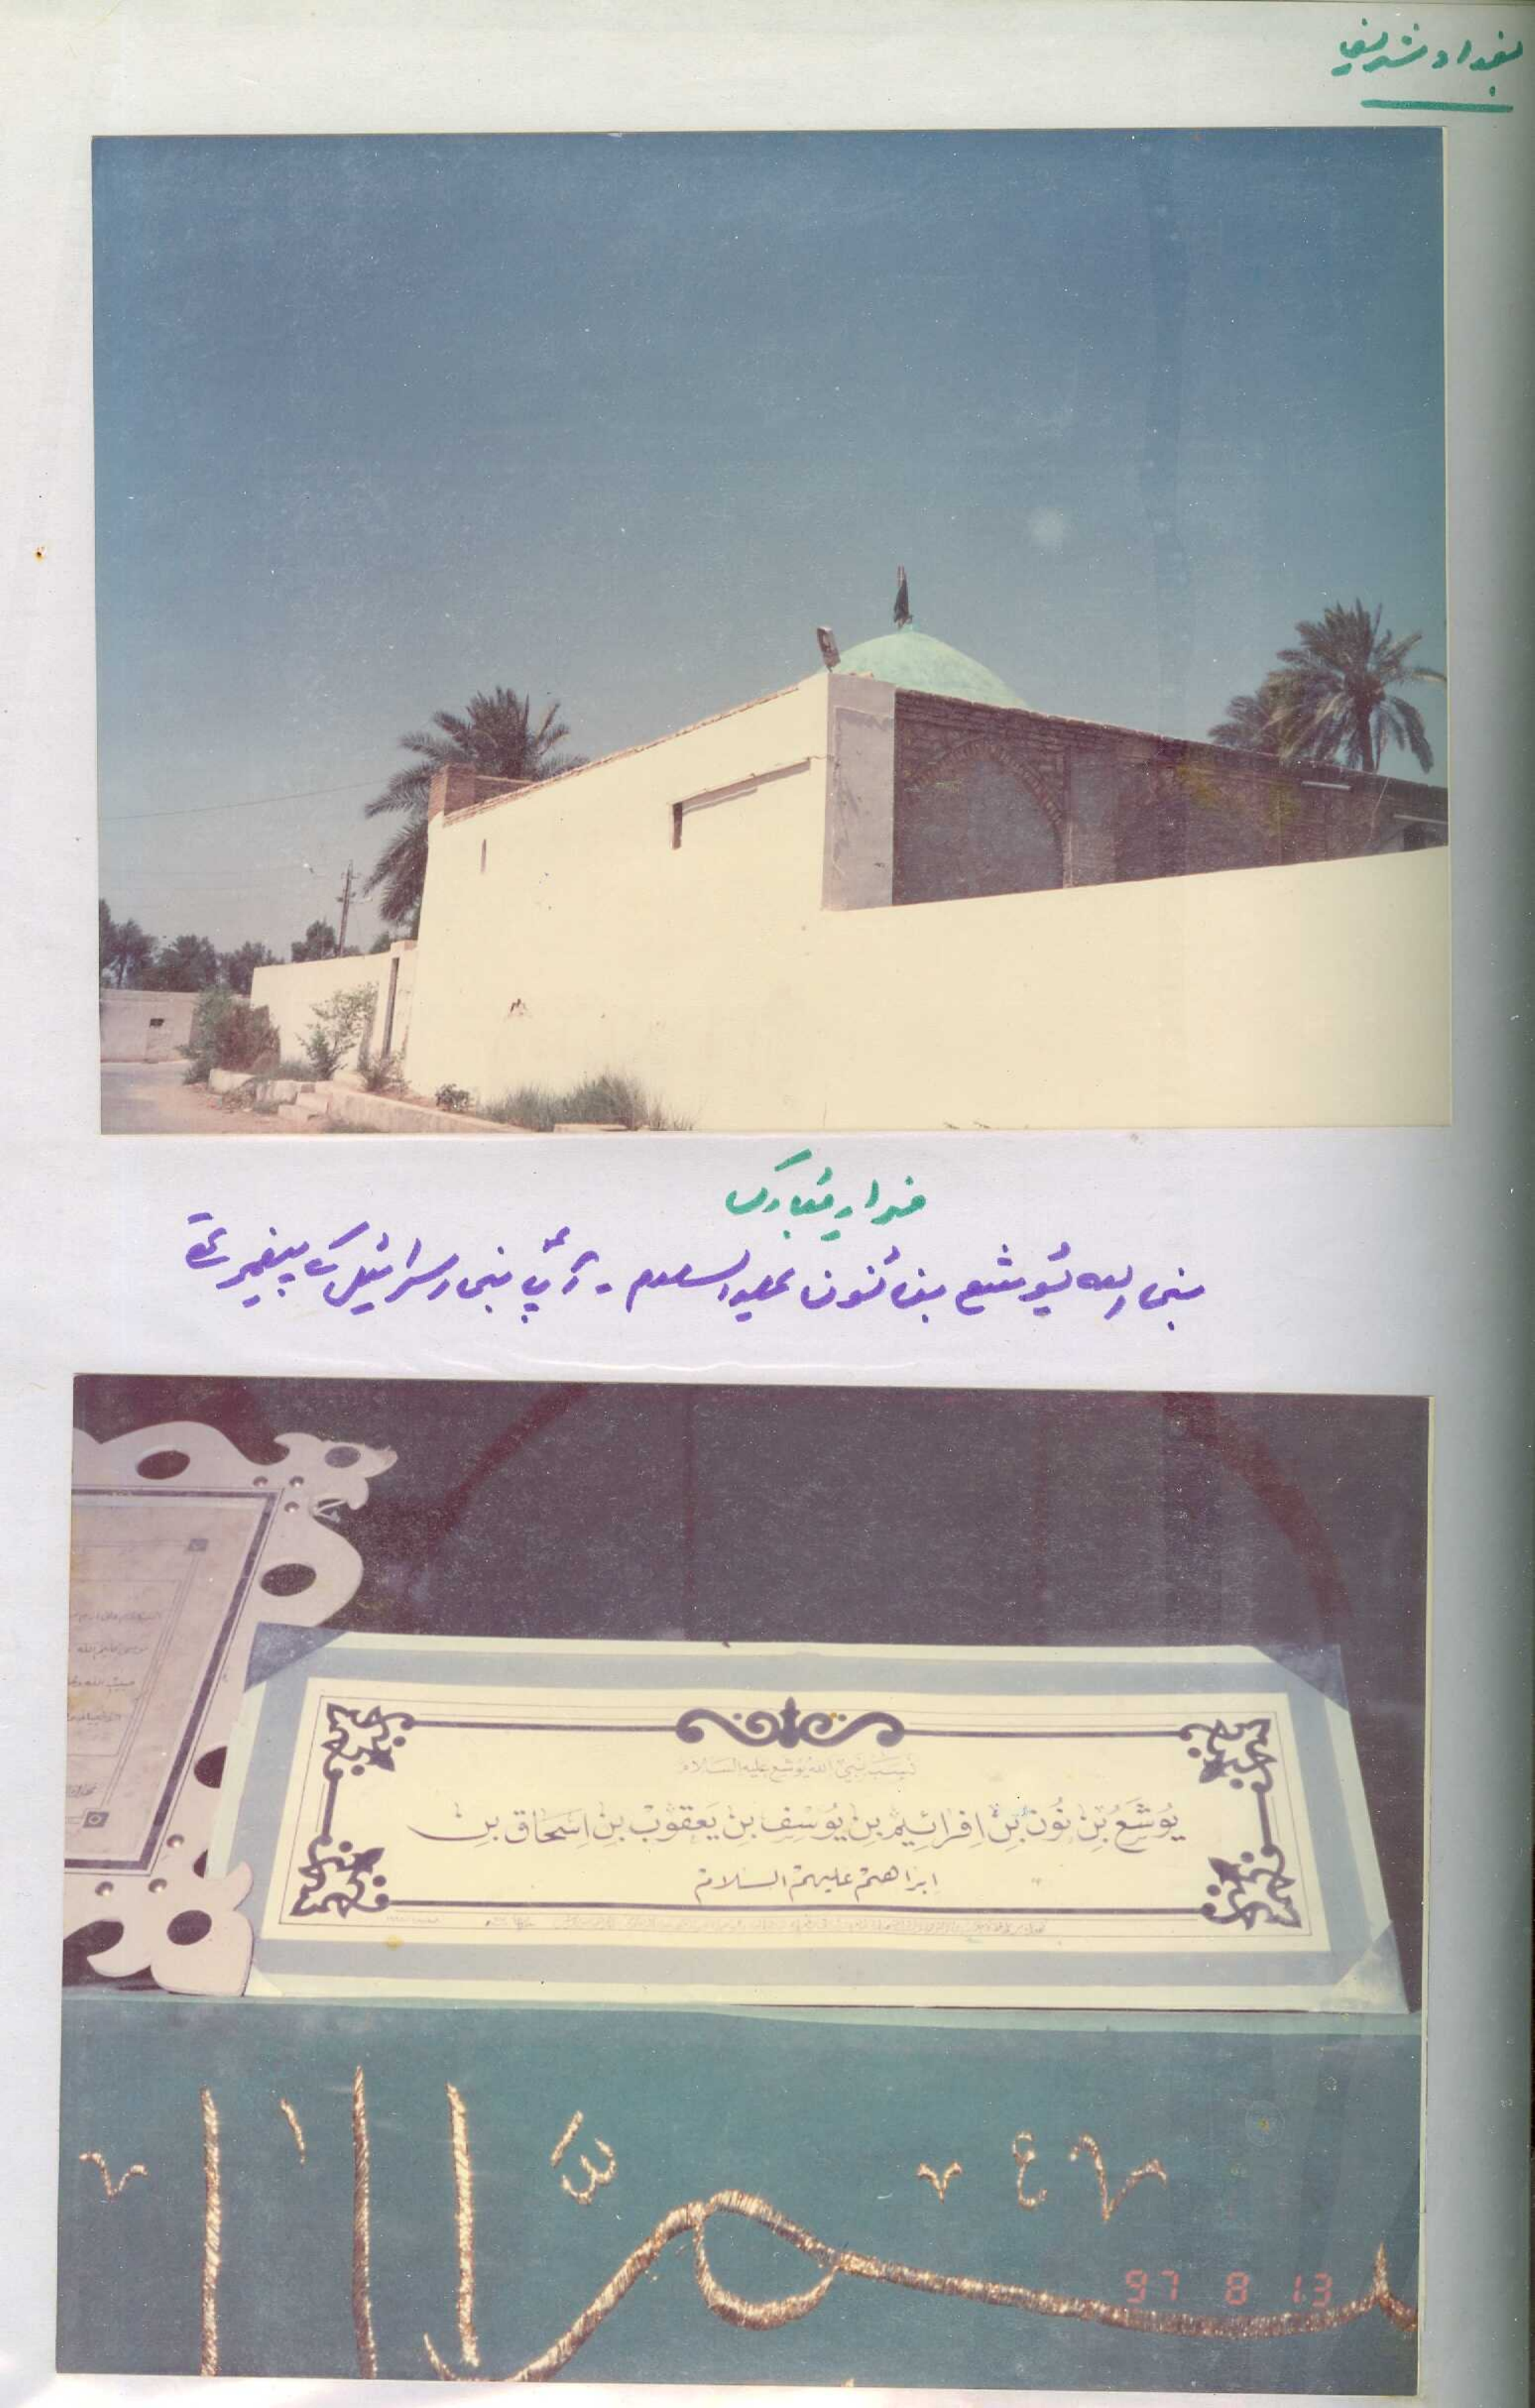 بغداد شریف
مزار مُبارک
نبی اللہ یُوشع بن نُون علیہ السلام ۔ آپؑ بنی اسرائیل کے پیغمبر تھے
نسب نبي الله يوشع عليه السلام
يُوشَعُ بِنِ نُون بِنِ اِفرائيم بِنِ يُوسُف بِنِ يَعقوُبْ بِنِ اِسحَاق بِن
اِبراهيم عليهم السلام
97 8 13